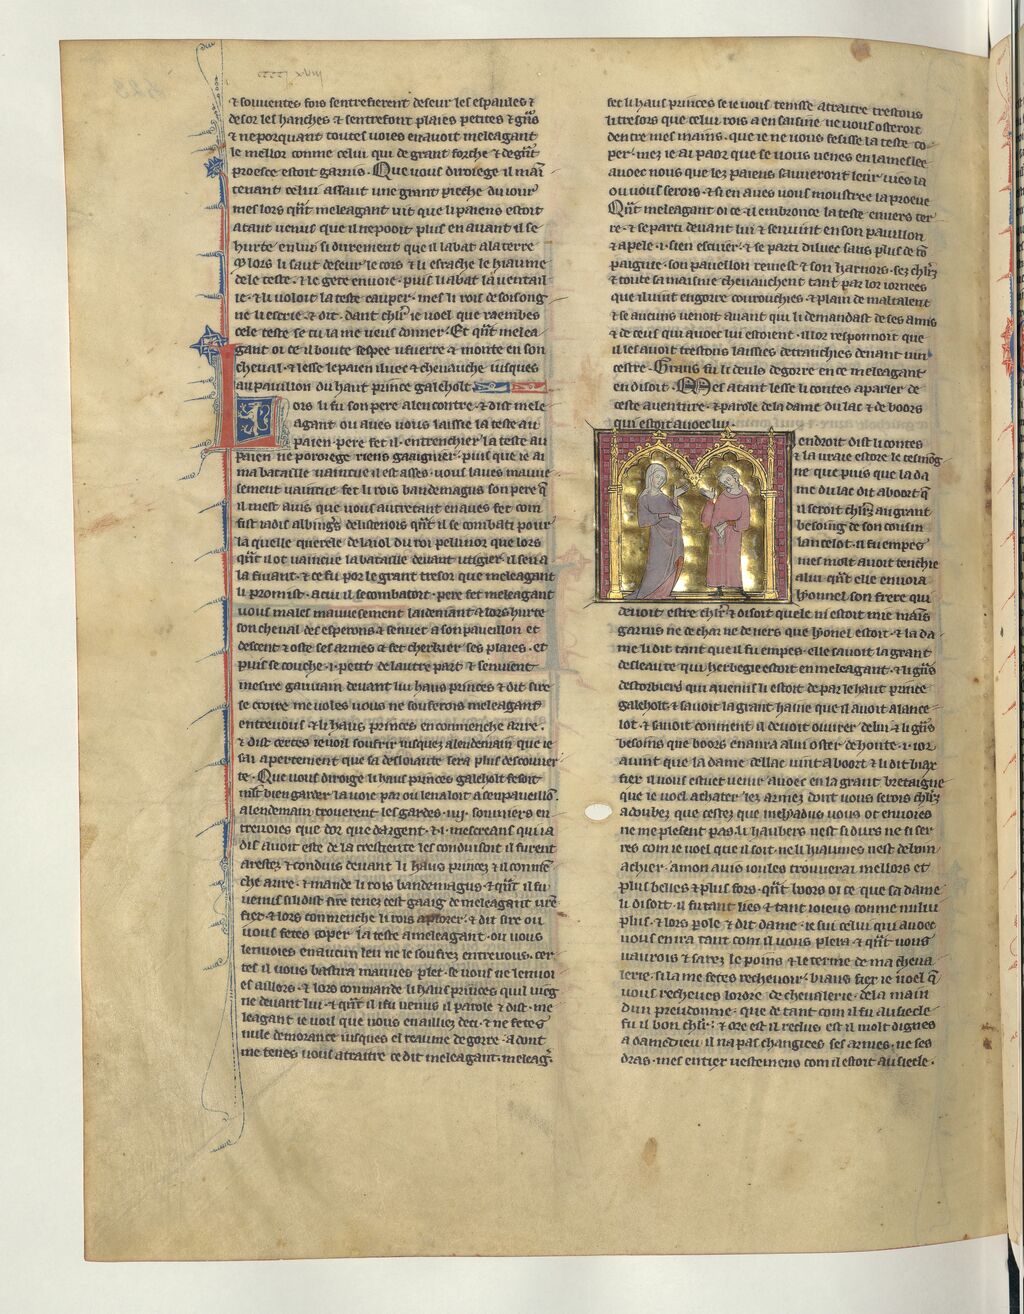 & souuentes fois sentrefierent deseur les espaules &
desor les hanches & sentrefont plaies petites & gns
& ne porquant toutes uoies en auoit meleagant
le mellor comme celui qui de grant forche & de gnt
proesce estoit garnis. Que uous diroie ge il main
tenant celui assaut une grant pieche du iour
mes lors qnt meleagant uit que li paiens estoit
atant uenus que il ne pooit plus en auant il se
hurte en lui si durement que il labat a la terre
lors li saut deseur le cors & li esrache le hiaume
de le teste. & le gete en uoie. puis li abat la uentail
le. & li uoloit la teste cauper. mes li rois de soisong
ne li escrie. & dit. dant chlr ie uoel que raembes
cele teste se tu la me ueus donner. Et qnt melea
gant oi ce il boute sespee u fuerre & monte en son
cheual. & lesse le paien iluec & cheuauche iusques
au pauillon du haut prince galeholt
Lors li fu son pere alencontre. & dist mele
agant ou aues uous laissie la teste au
paien. pere fet il. en trenchier la teste au
paien ne poroie ge riens gaaignier. puis que ie ai
ma bataille uaincue il est asses. uous laues mauue
sement uaincue fet li rois bandemagus son pere q
il mest auis que uous autretant en aues fet com
fist iadis albings de listenois qnt il se combati pour
la quelle querele de laiol du roi pellinor que lors
qnt il ot uaincue la bataille deuant utigier. il sen a
la fuiant. & ce fu por le grant tresor que meleagant
li promist. a cui il se combatoit. pere fet meleagant
uous males mauuesement laidemant & lors hurte
son cheual des esperons & senuet a son paueillon et
descent & oste ses armes & fet cherkier ses plaies. et
puis se couche .i. petit de lautre part & senuient
mesire gauuain deuant lui haus princes & dit sire
se croire me uoles uous ne souferois meleagant
entre uous. & li haus princes en commenche a rire.
& dist certes ie uoil soufrir iusquez alendemain que ie
sai apertement que sa desloiaute sera plus descouuer
te. Que uous diroi ge li haus princes galeholt fesoit
mlt bien garder la uoie par ou len aloit a sen paueillo.
alendemain trouerent les gardes .iiij. somiers en
treuoies que dor que dargent. & .i. mescreans qui ia
dis auoit este de la creistiente les conduisoit il furent
arestez & conduis deuant li haus princez & il comme
che a rire. & mande li rois bandemagus & qnt il fu
uenus si li dist sire tenez cest gaaig de meleagant ure
fier & lors commenche li rois a plorer. & dit sire ou
uous fetes coper la teste a meleagant. ou uous
lenuoies en aucun leu ne le soufrez entre uous. cer
tes il uous bastira mauues plet. se uous ne lenuoi
es aillors. & lors commande li haus princes quil uieg
ne deuant lui. & qnt il i fu uenus il parole & dist. me
leagant ie uoil que uous en aillies deci. & ne fetes
nule demorance iusques el reaume de gorre. adont
me tenes uous a traitre ce dit meleagant. meleag.
fet li haus princes se ie uous tenisse a traitre trestous
li tresors que celui rois a en saisine ne uous osteroit
dentre mes mains. que ie ne uous fesisse la teste co
per. mez ie ai paor que se uous uenes en la meslee
auoec nous que lez paiens sauueront leur uies la
ou uous serois. & si en aues uous moustree la proeue
Qnt meleagant oi ce & il embronce la teste enuers ter
re. & se parti deuant lui & senuint en son pauillon
& apele .i. sien escuier. & se parti diluec sans plus de co
paignie. son paueillon remest & son harnois. sez chlrs
& toute sa maisnie cheuauchent tant par lor iornees
que il uint en gorre courouchies. & plain de maltalent
& se aucuns uenoit auant qui li demandast de ses amis
& de ceus qui auoec lui estoient. illor responnoit que
il les auoit trestous laissies detranchies deuant uin
cestre. Grans fu li deuls de gorre en ce meleagant
en disoit. Mes atant lesse li contes a parler de
ceste auenture. & parole de la dame du lac & de boors
qui estoit auoec lui.
I endroit dist li contes
& la uraie estore le tesmoig
ne que puis que la da
me du lac dit a boort q
il seroit chlrs au grant
besoing de son cousin
lancelot. il fu empes
mes molt auoit tenchie
a lui qnt elle enuoia
lyonnel son frere qui
deuoit estre chlr & disoit quele ni estoit mie mais
garnis ne de char ne de ners que lyonel estoit. & la da
me li dit tant que il fu empes. elle sauoit la grant
desleaute qui herbegie estoit en meleagant. & li gns
destorbiers qui auenus li estoit de par le haut prince
galeholt. & sauoit la grant haine que il auoit a lance
lot. & sauoit comment il deuoit ouurer de lui & li gns
besoins que boors en aura a lui oster de honte .i. ior
auint que la dame del lac uint a boort & li dit biax
fiex il uous estuet uenir auoec en la grant bretaigne
que ie uoel achater lez armez dont uous serois chlrs
adoubez que cestez que mehadus uous ot enuoies
ne me plesent pas. li haubers nest si durs ne si ser
res com ie uoel que il soit. ne li hiaumes nest de boin
achier. a mon auis ioules trouuerai mellors et
plus belles & plus fors. qnt boors oi ce que sa dame
li disoit. il fu tant lies & tant ioieus comme nului
plus. & lors pole & dit dame. ie sui celui qui auoec
uous enira tant com il uous plera & qnt uous
uaurois & sarez le poins & le terme de ma cheua
lerie. si la me fetes recheuoir. biaus fiex ie uoel q
uous recheues lordre de cheualerie. de la main
dun preudomme. que de tant com il fu au siecle
fu il bon chlr. & ore est il reclus est il molt dignes
a damedieu. il na pas changiees ses armes. ne ses
dras. mes entier uestemens com il estoit au siecle.